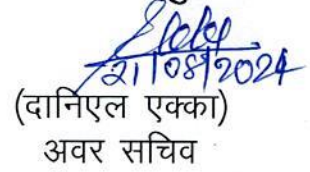 21/08/2024
(दानिएल एक्का)
अवर सचिव